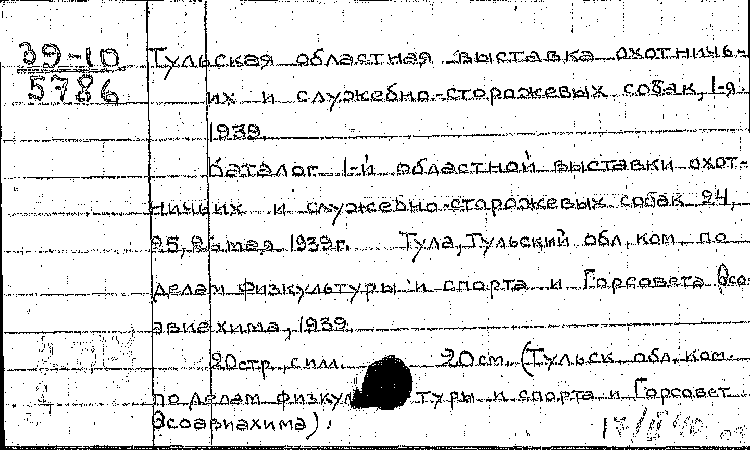 39-10
5786
Тульская областная выставка охотничь-
их и служебно-сторожевых собак, 1-я.
1939.
Каталог 1-й областной выставки охот-
ничьих и служебно-сторожевых собак 24,
25, 26 мая 1939г. Тула, Тульский обл. ком. по
делам физкультуры и спорта и Горсовета Осо-
авиахима, 1939.
20стр. с илл. 20см. (Тульск. обл. ком.
по делам физкультуры и спорта и Горсовет
Осоавиахима).